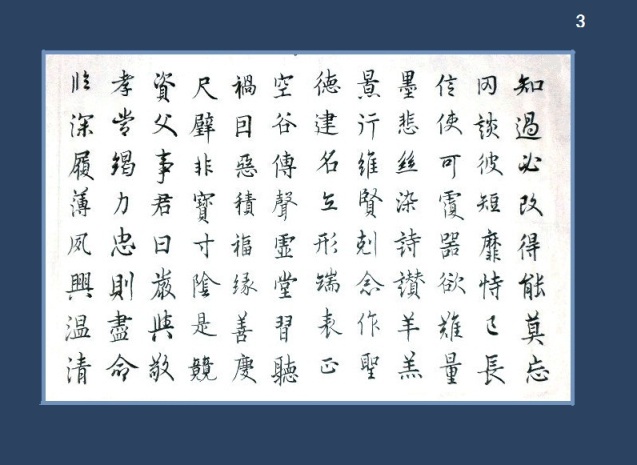 3
知過必改得能莫忘
罔談彼短靡恃己長
信使可覆器欲難量
墨悲絲染詩讃羊羔
景行維賢剋念作聖
德建名立形端表正
空谷傳聲虛堂習聽
禍因惡積福緣善慶
尺璧非寶寸陰是競
資父事君曰嚴與敬
孝當竭力忠則盡命
臨深履薄夙興温清